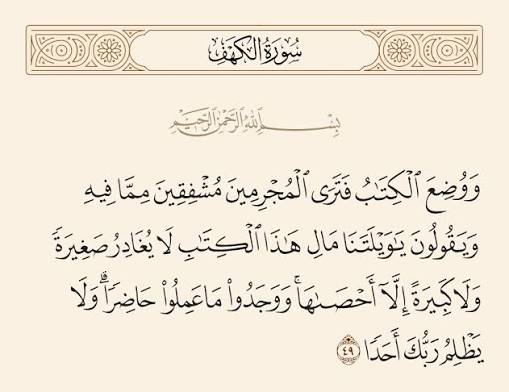 سُورَةُ الكَهۡفِ
بِسۡمِ ٱللَّهِ ٱلرَّحۡمَٰنِ ٱلرَّحِيمِ
وَوُضِعَ ٱلۡكِتَٰبُ فَتَرَى ٱلۡمُجۡرِمِينَ مُشۡفِقِينَ مِمَّا فِيهِ
وَيَقُولُونَ يَٰوَيۡلَتَنَا مَالِ هَٰذَا ٱلۡكِتَٰبِ لَا يُغَادِرُ صَغِيرَةٗ
وَلَا كَبِيرَةً إِلَّآ أَحۡصَىٰهَاۚ وَوَجَدُواْ مَا عَمِلُواْ حَاضِرٗاۗ وَلَا
يَظۡلِمُ رَبُّكَ أَحَدٗا ٤٩